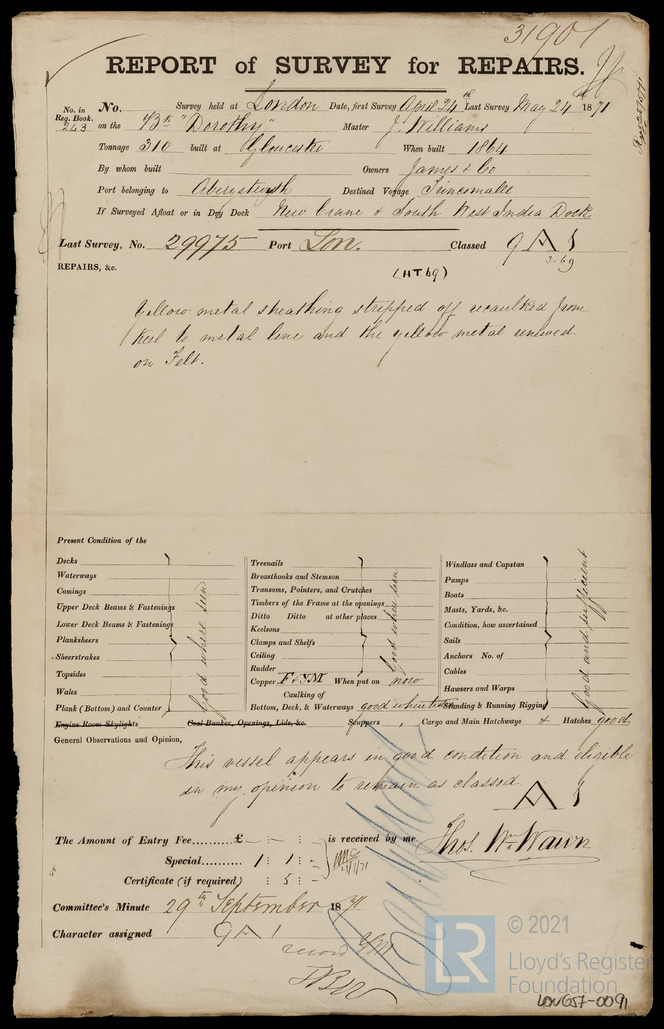 31901
REPORT of SURVEY for REPAIRS.
No. in Reg. Book. 243
No. Survey held at London Date, first Survey April 24th Last Survey May 24 1871
on the Bk "Dorothy" Master J. Williams
Tonnage 310 built at Gloucester When built 1864
By whom built Owners James & Co
Port belonging to Aberystwyth Destined Voyage Trincomalle
If Surveyed Afloat or in Dry Dock New Crane & South West India Dock
Last Survey, No. 29975 Port Lon. Classed 9 A 1
3.69
REPAIRS, &c. (HT.69)
Yellow metal sheathing stripped off recaulked from
keel to metal line and the yellow metal renewed
on Felt.
Present Condition of the
Decks
Waterways
Comings
Upper Deck Beams & Fastenings
Lower Deck Beams & Fastenings
Planksheers
Sheerstrakes
Topsides
Wales
Plank (Bottom) and Counter
good where seen
Engine Room Skylights Coal Bunker, Openings, Lids, &c.
Treenails
Breasthooks and Stemson
Transoms, Pointers, and Crutches
Timbers of the Frame at the openings
Ditto Ditto at other places
Keelsons
Clamps and Shelfs
Ceiling
Rudder
good where seen
Copper F & YM When put on now
Caulking of
Bottom, Deck, & Waterways good where seen
Windlass and Capstan
Pumps
Boats
Masts, Yards, &c.
Condition, how ascertained
Sails
Anchors No. of
Cables
Hawsers and Warps
Standing & Running Rigging
good and sufficient
Scuppers , Cargo and Main Hatchways & Hatches good
General Observations and Opinion,
This vessel appears in good condition and eligible
in my opinion to remain as classed
A 1
The Amount of Entry Fee.......... £ - : - : - is received by me,
Special.......... 1 : 1 : -
Certificate (if required) : 5 : -
Thos. W. Wawn
Committee's Minute 29th September 1871
Character assigned 9 A 1
© 2021
LR
Lloyd's Register
Foundation
LON657-0091